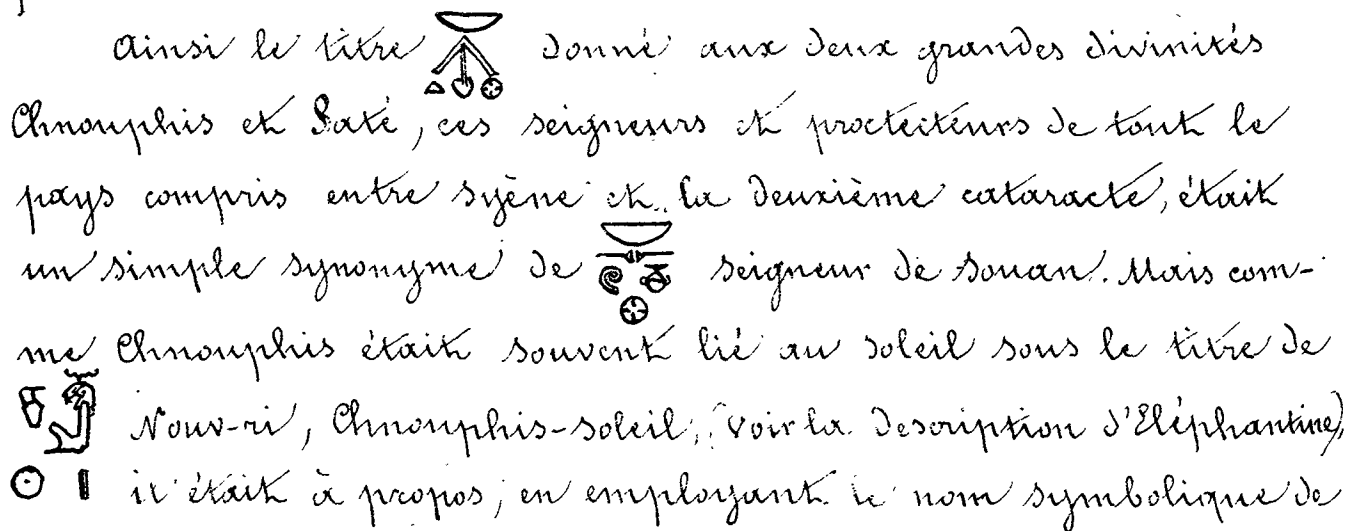 Ainsi le titre donné aux deux grandes divinités
Chnouphis et Saté, ces seigneurs et proctecteurs de tout le
pays compris entre syène et la deuxième cataracte, était
un simple synonyme de seigneur de Souan. Mais com-
me Chnouphis était souvent lié au soleil sous le titre de
Nouv-ri, Chnouphis-soleil, (voir la description d'Eléphantine),
il était à propos, en employant le nom symbolique de